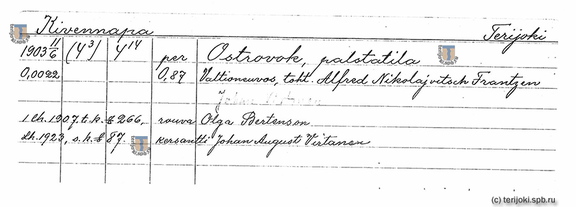 Kivennapa Terijoki
1903 11/6 (4³) 4¹⁴ per Ostrovok, palstatila
0,0022 0,87 Valtioneuvos, toht. Alfred Nikolajvitsch Frantzen
1 lh. 1907, t.k. § 266, rouva Olga Bertenson
Lh. 1923, s.k. § 87. kersantti Johan August Virtanen
(c) terijoki.spb.ru